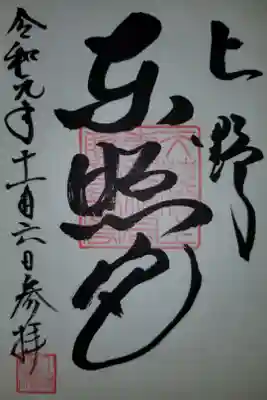 上野
東照宮
令和元年十一月六日参拝